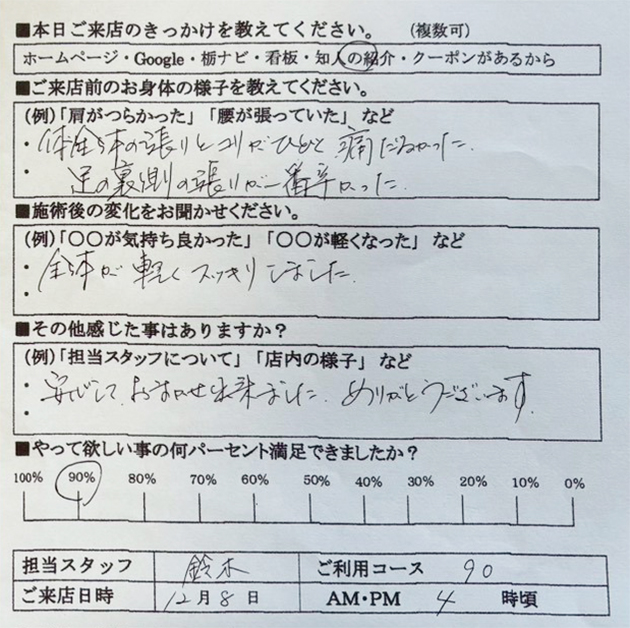 ■本日ご来店のきっかけを教えてください。 (複数可)
ホームページ・Google・栃ナビ・看板・知人の紹介・クーポンがあるから
■ご来店前のお身体の様子を教えてください。
(例)「肩がつらかった」「腰が張っていた」など
・体全体の張りとコリがひどく 痛だるかった.
・足の裏側の張りが一番辛かった.
■施術後の変化をお聞かせください。
(例)「〇〇が気持ち良かった」「〇〇が軽くなった」など
・全体が軽くスッキリしました.
・
■その他感じた事はありますか?
(例)「担当スタッフについて」「店内の様子」など
・安心して、おまかせ出来ました. ありがとうございます.
・
■やって欲しい事の何パーセント満足できましたか?
100% 90% 80% 70% 60% 50% 40% 30% 20% 10% 0%
担当スタッフ 鈴木 ご利用コース 90
ご来店日時 12月8日 AM・PM 4 時頃